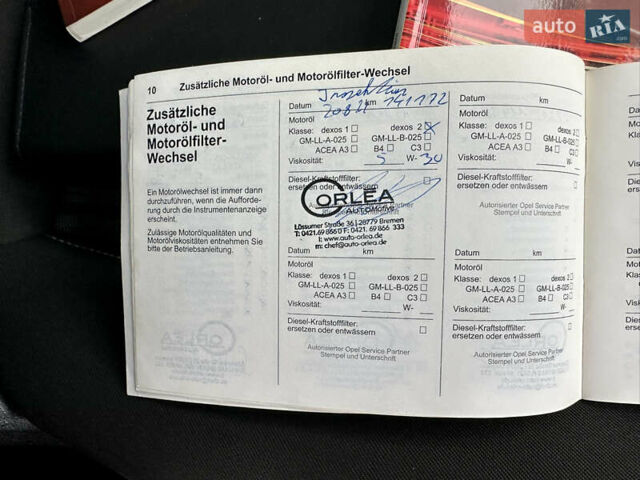 auto RIA .com
10 Zusätzliche Motoröl- und Motorölfilter-Wechsel
Zusätzliche
Motoröl- und
Motorölfilter-
Wechsel
Ein Motorölwechsel ist immer dann
durchzuführen, wenn die Aufforde-
rung durch die Instrumentenanzeige
erscheint.
Zulässige Motorölqualitäten und
Motorölviskositäten entnehmen Sie
bitte der Betriebsanleitung.
Datum km 141172
Motoröl
Klasse: dexos 1 dexos 2 x
GM-LL-A-025 GM-LL-B-025
ACEA A3 B4 C3
Viskosität: 5 W- 30
Diesel-Kraftstofffilter:
ersetzen oder entwässern
ORLEA
AUTOMOTIVE
Lössumer Straße 36 | 28779 Bremen
T: 0421.69 866 0 F: 0421. 69 866 333
i: www.auto-orlea.de
m: chef@auto-orlea.de
Datum km
Motoröl
Klasse: dexos 1 dexos 2
GM-LL-A-025 GM-LL-B-025
ACEA A3 B4 C3
Viskosität: W-
Diesel-Kraftstofffilter:
ersetzen oder entwässern
Autorisierter Opel Service Partner
Stempel und Unterschrift
Datum km
Motoröl
Klasse: dexos 1 dexos 2
GM-LL-A-025 GM-LL-B-025
ACEA A3 B4 C3
Viskosität: W-
Diesel-Kraftstofffilter:
ersetzen oder entwässern
Autorisierter Opel Service Partner
Stempel und Unterschrift
Datum km
Motoröl
Klasse: dexos 1 dexos 2
GM-LL-A-025 GM-LL-B-025
ACEA A3 B4 C3
Viskosität: W-
Diesel-Kraftstofffilter:
ersetzen oder entwässern
Autorisierter Opel Service Partner
Stempel und Unterschrift